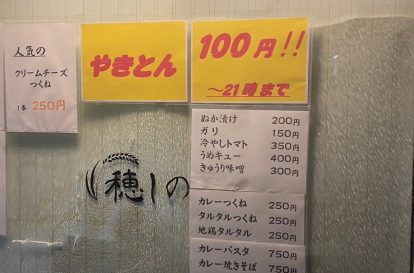 人気の
クリームチーズ
つくね
1本 250円
やきとん
100円!!
〜21時まで
ぬか漬け 200円
ガリ 150円
冷やしトマト 350円
うめキュー 400円
きゅうり味噌 300円
穂しの
カレーつくね 250円
タルタルつくね 250円
地鶏タルタル 250円
カレーパスタ 750円
カレー焼きそば 750円